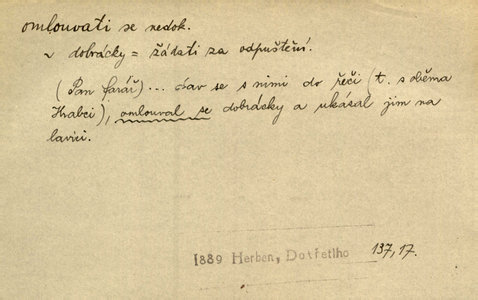 omlouvati se nedok.
~ dobrácky = žádati za odpuštění.
(Pan farář) ... dav se s nimi do řeči (t. s oběma
Hrabci), omlouval se dobrácky a ukázal jim na
lavici.
1889 Herben, Do třetího 137,17.